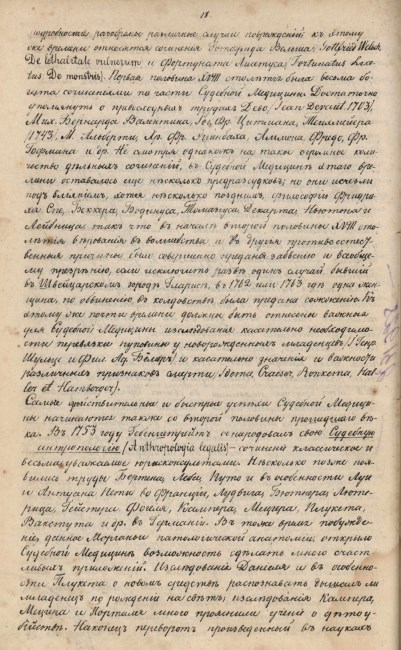 18.
подробности разобралъ различные случаи поврежденій къ этому
же времени относятся сочиненія Готфрида Вельша, Gotfried Welsch,
De lethalitate vulnerum и Фортуната Лицетуса, Fortunatus Lice-
tus De monstris). Первая половина XVIII столѣтія была весьма бо-
гата сочиненіями по части Судебной Медицины. Достаточно
упомянуть о превосходныхъ трудахъ Дево, Jean Devaux 1703)
Мих. Бернарда Валентини, Фр. Цитмана, Тейхмейера
1723) М. Альберти, Фр. Фридо, Фр.
Гофмана и др. Не смотря однакожъ на такое огромное коли-
чество дѣльныхъ сочиненій, въ Судебной Медицинѣ этого време-
ни оставалось еще нѣсколько предразсудковъ; но они исчезли
подъ вліяніемъ, хотя нѣсколько позднимъ, философіи Фридри-
ха Спе, Беккера, Томазіуса Декарта Ньютона и
Лейбница такъ что въ началѣ второй половины XVIII сто-
лѣтія вѣрованія въ волшебство и въ другія противоестес-
венныя причины были совершенно преданы забвенію и всеобще-
му презрѣнію, если исключить развѣ одинъ случай бывшій
въ Швейцарскомъ городѣ Гларисѣ, въ 1782 или 1783 годъ одна жен-
щина по обвиненію въ колдовствѣ была предана сожженію. Къ
этому же почти времени должны быть отнесены важныя
для Судебной Медицины изслѣдованія касательно необходимо-
сти перевязки пуповины у новорожденныхъ младенцевъ,
Шульце и Фил. Ад. Бёмеръ) и касательно значенія и важности
различныхъ признаковъ смерти,
Самые дѣйствительные и быстрые успѣхи Судебной Медици-
ны начинаются также со второй половины прошедшаго вѣ-
ка. Въ 1753 году Гебенштрейтъ обнародовалъ свою Судебную
антропологію (Anthropologia legalis) – сочиненіе классическое и
весьма уважаемое юрисконсультами. Нѣсколько позже поя-
вились труды Луи и въ особенности Луи
и Антуана Пети во Франціи, Лудвига, Бюттнера,
Фоселя, Кампера, Мецгера, Плукета,
и др. въ Германіи. Въ тоже время побужде-
ніе, данное Морганьи патологической анатоміи, открыло
Судебной Медицинѣ возможность сдѣлать много счаст-
ливыхъ приложеній. Изслѣдованія Даніеля и въ особенно-
сти Плукета о новомъ средствѣ распознавать дышалъ ли
младенецъ по рожденіи на свѣтъ; изслѣдованія Кампера,
и Портала много прояснили ученіе о дѣтоу-
бійствѣ. Наконецъ переворотъ произведенный въ наукахъ